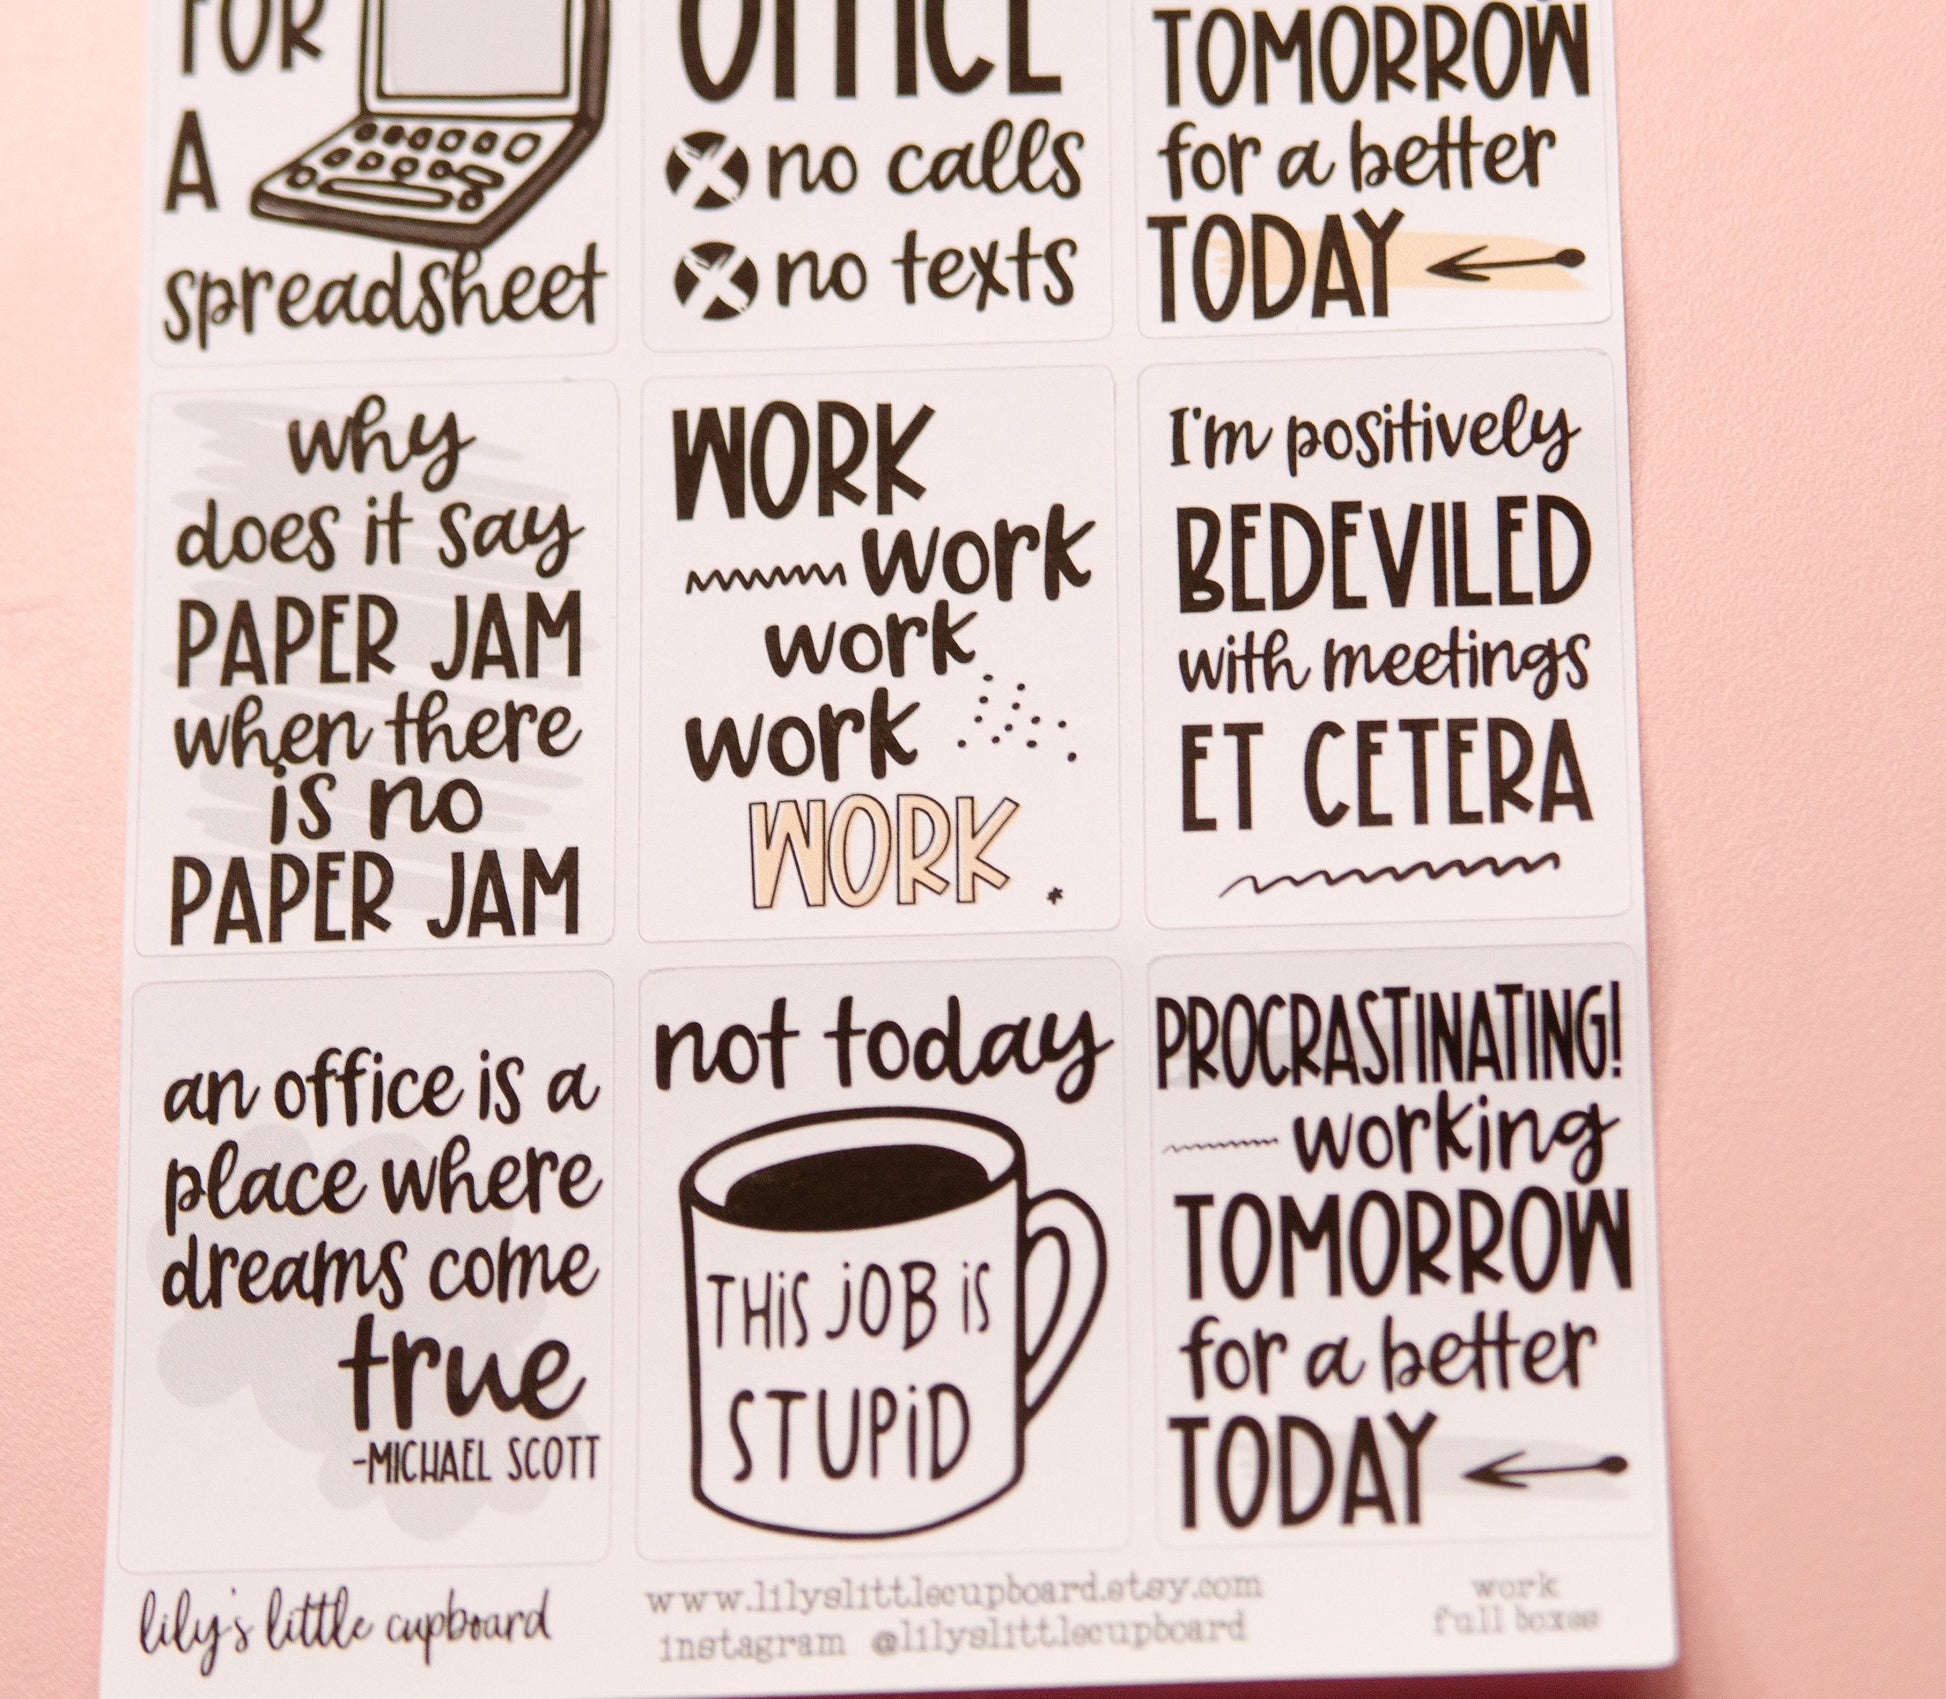 FOR
A
spreadsheet
OFFICE
no calls
no texts
TOMORROW
for a better
TODAY
why
does it say
PAPER JAM
when there
is no
PAPER JAM
WORK
work
work
work
WORK
I'm positively
BEDEVILED
with meetings
ET CETERA
an office is a
place where
dreams come
true
-MICHAEL SCOTT
not today
THiS jOB iS
STUPiD
PROCRASTINATING!
working
TOMORROW
for a better
TODAY
lily's little cupboard
www.lilyslittlecupboard.etsy.com
instagram @lilyslittlecupboard
work
full boxes